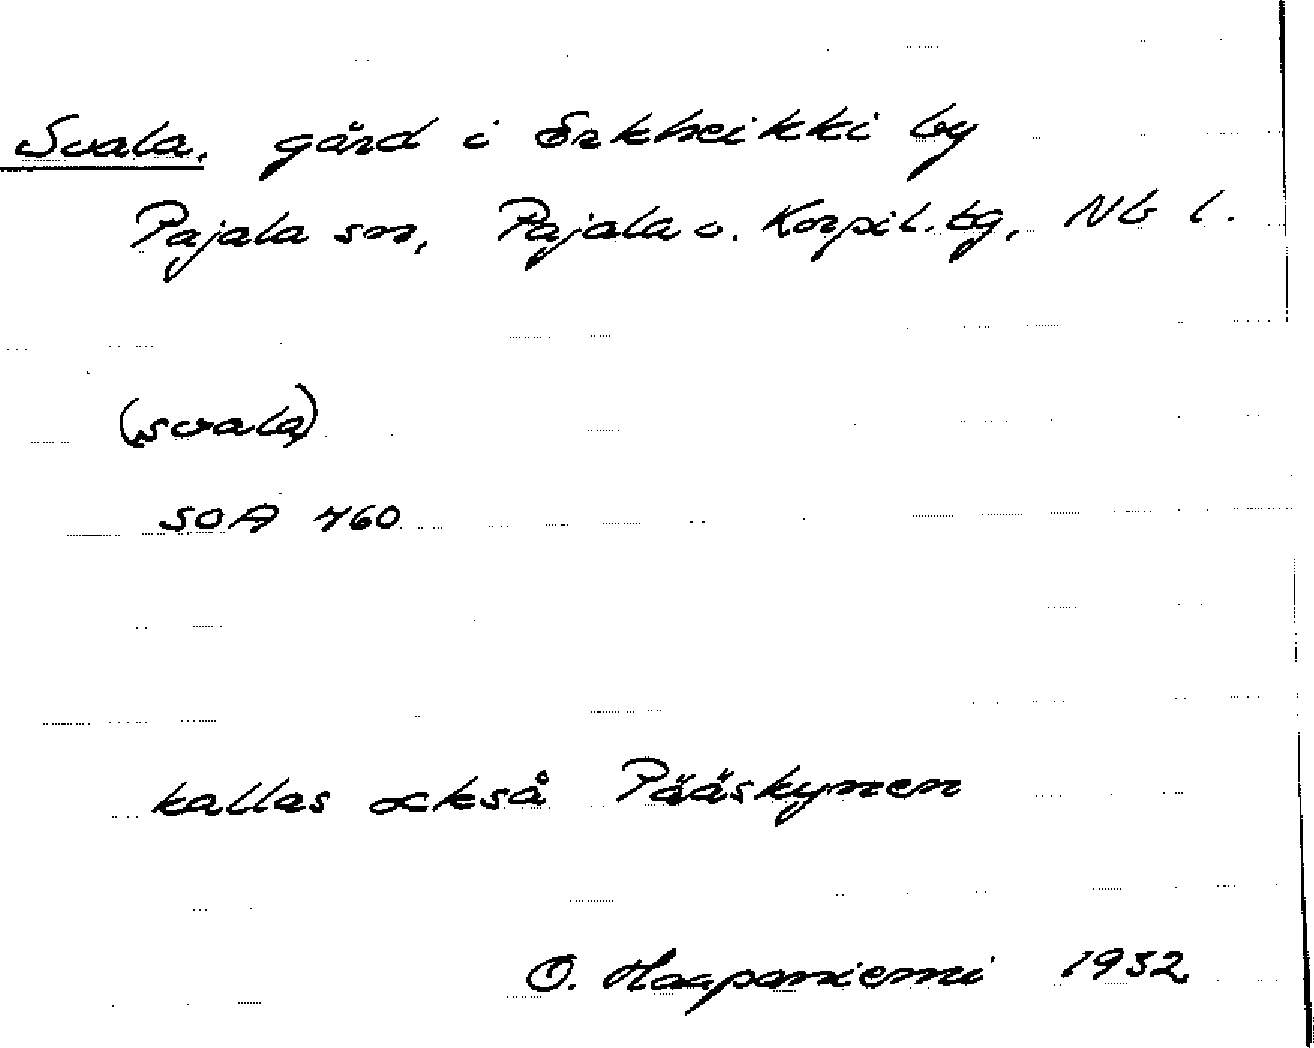 Svala, gård i Erkheikki by
Pajala sn, Pajala o. Korpil. tg, Nb l.
(svala)
SOA 760
kallas också Pääskynen
O. Haapaniemi 1932